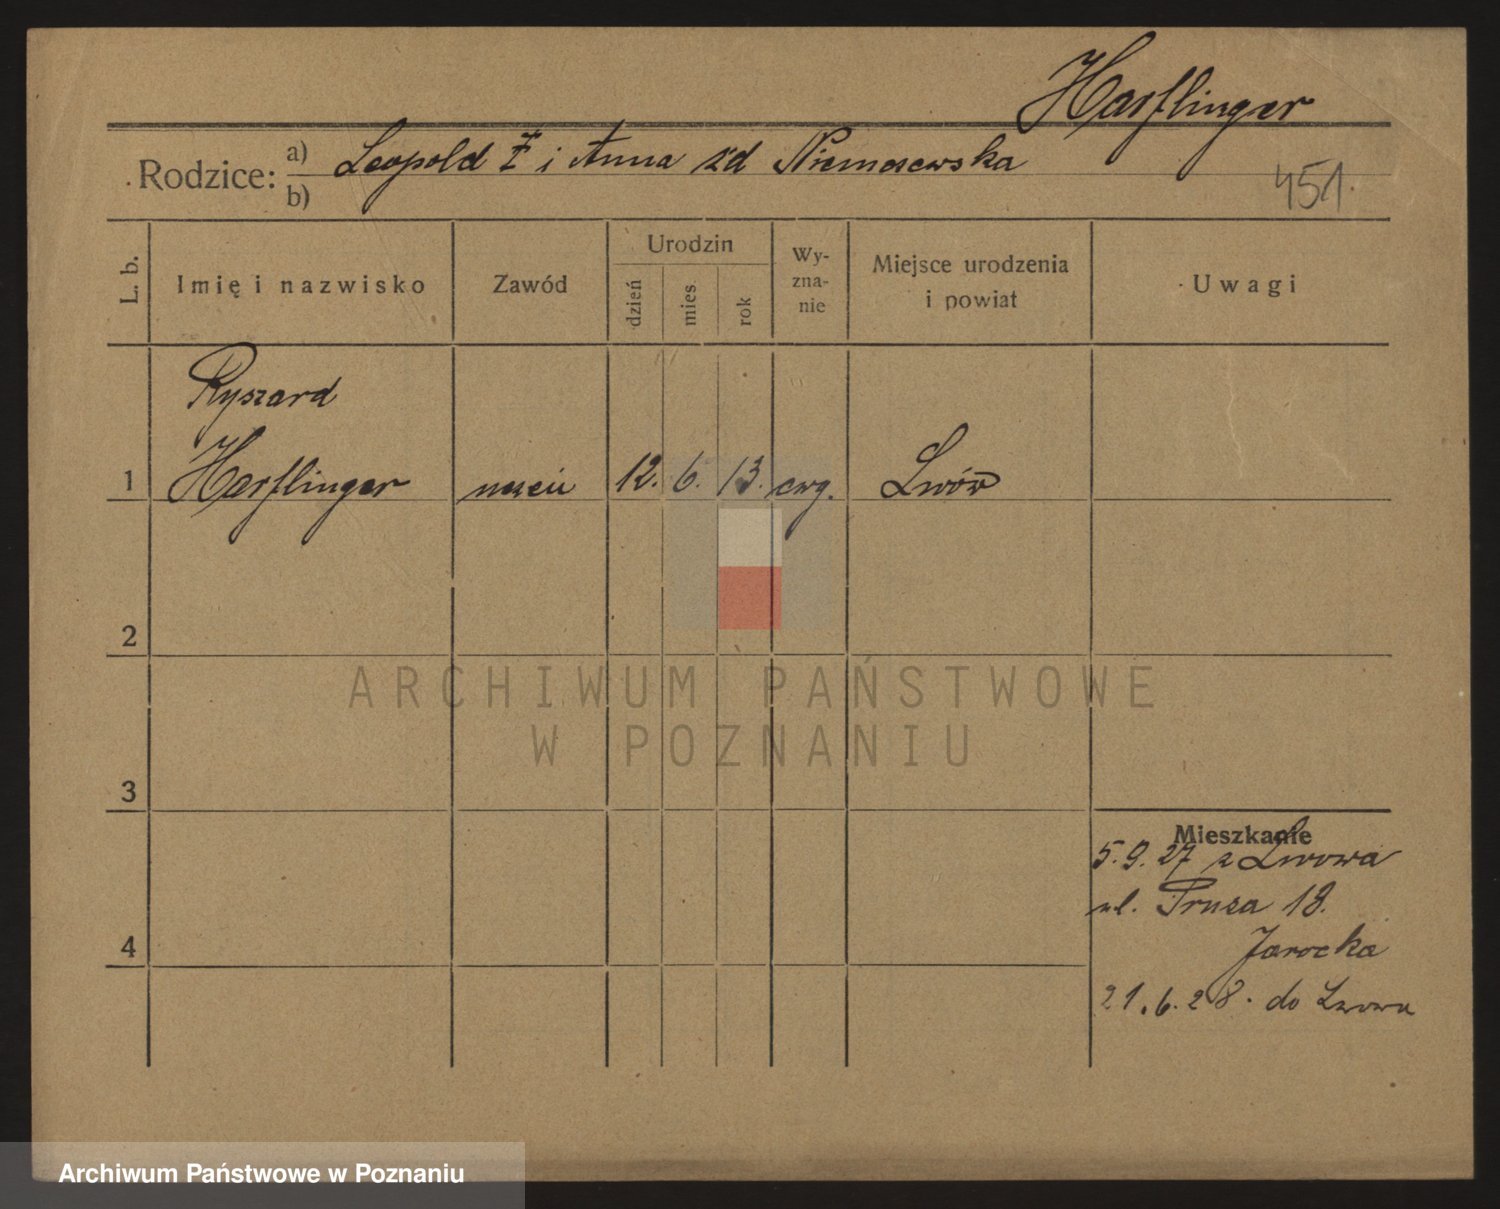 Harflinger
Rodzice: a) b) Leopold Ż i Anna z'd
451.
L. b.
Imię i nazwisko
Zawód
Urodzin
dzień
mies
rok
Wy-
zna-
nie
Miejsce urodzenia
i powiat
Uwagi
Ryszard
1 Harflinger uczeń 12. 6. 13. ewg. Lwów
2
ARCHIWUM PAŃSTWOWE
W POZNANIU
3
Mieszkanie
5.9.27 z Lwowa
ul. Prusa 18.
Jarocka
4
21.6.28. do Lwowa
Archiwum Państwowe w Poznaniu